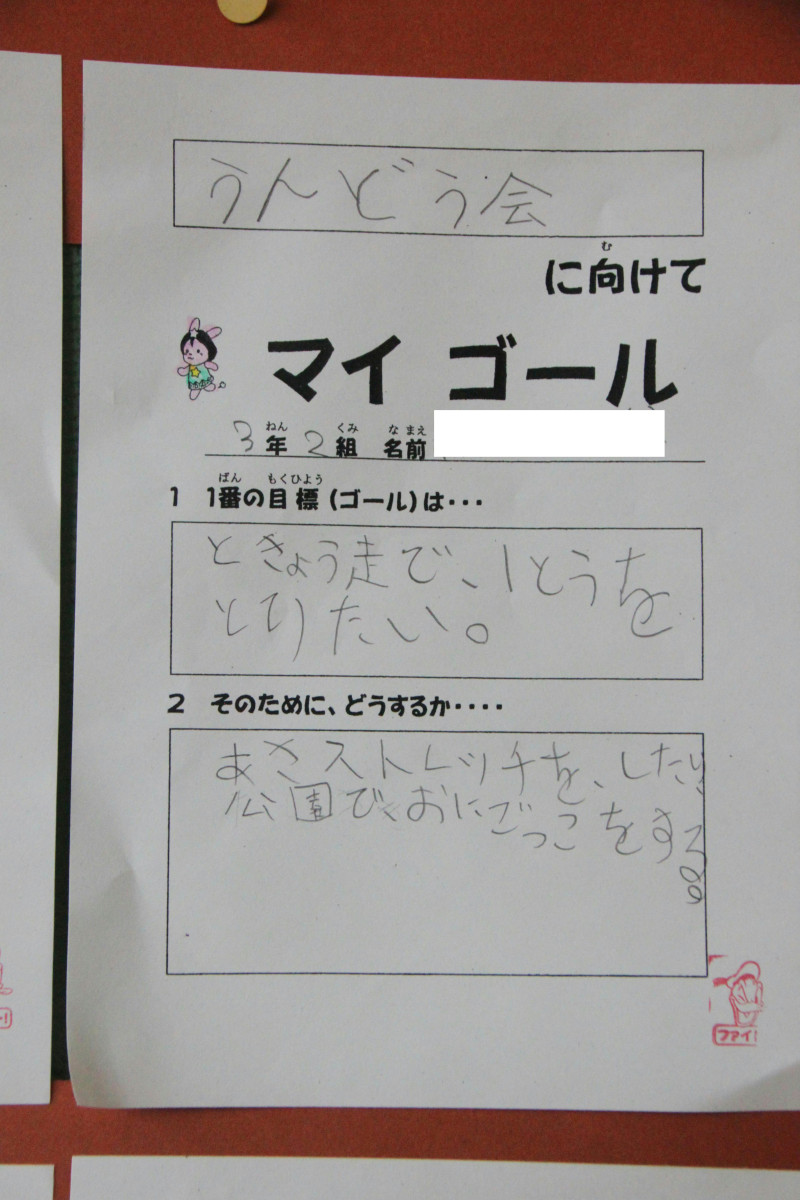 うんどう会
に向けて
む
マイ ゴール
3年2組 名前
ねん くみ な まえ
1 1番の目標(ゴール)は・・・
ばん もくひょう
ときょう走で、1とうを
とりたい。
2 そのために、どうするか・・・・
あさストレッチを、したい
公園で、おにごっこをする。
ファイ!